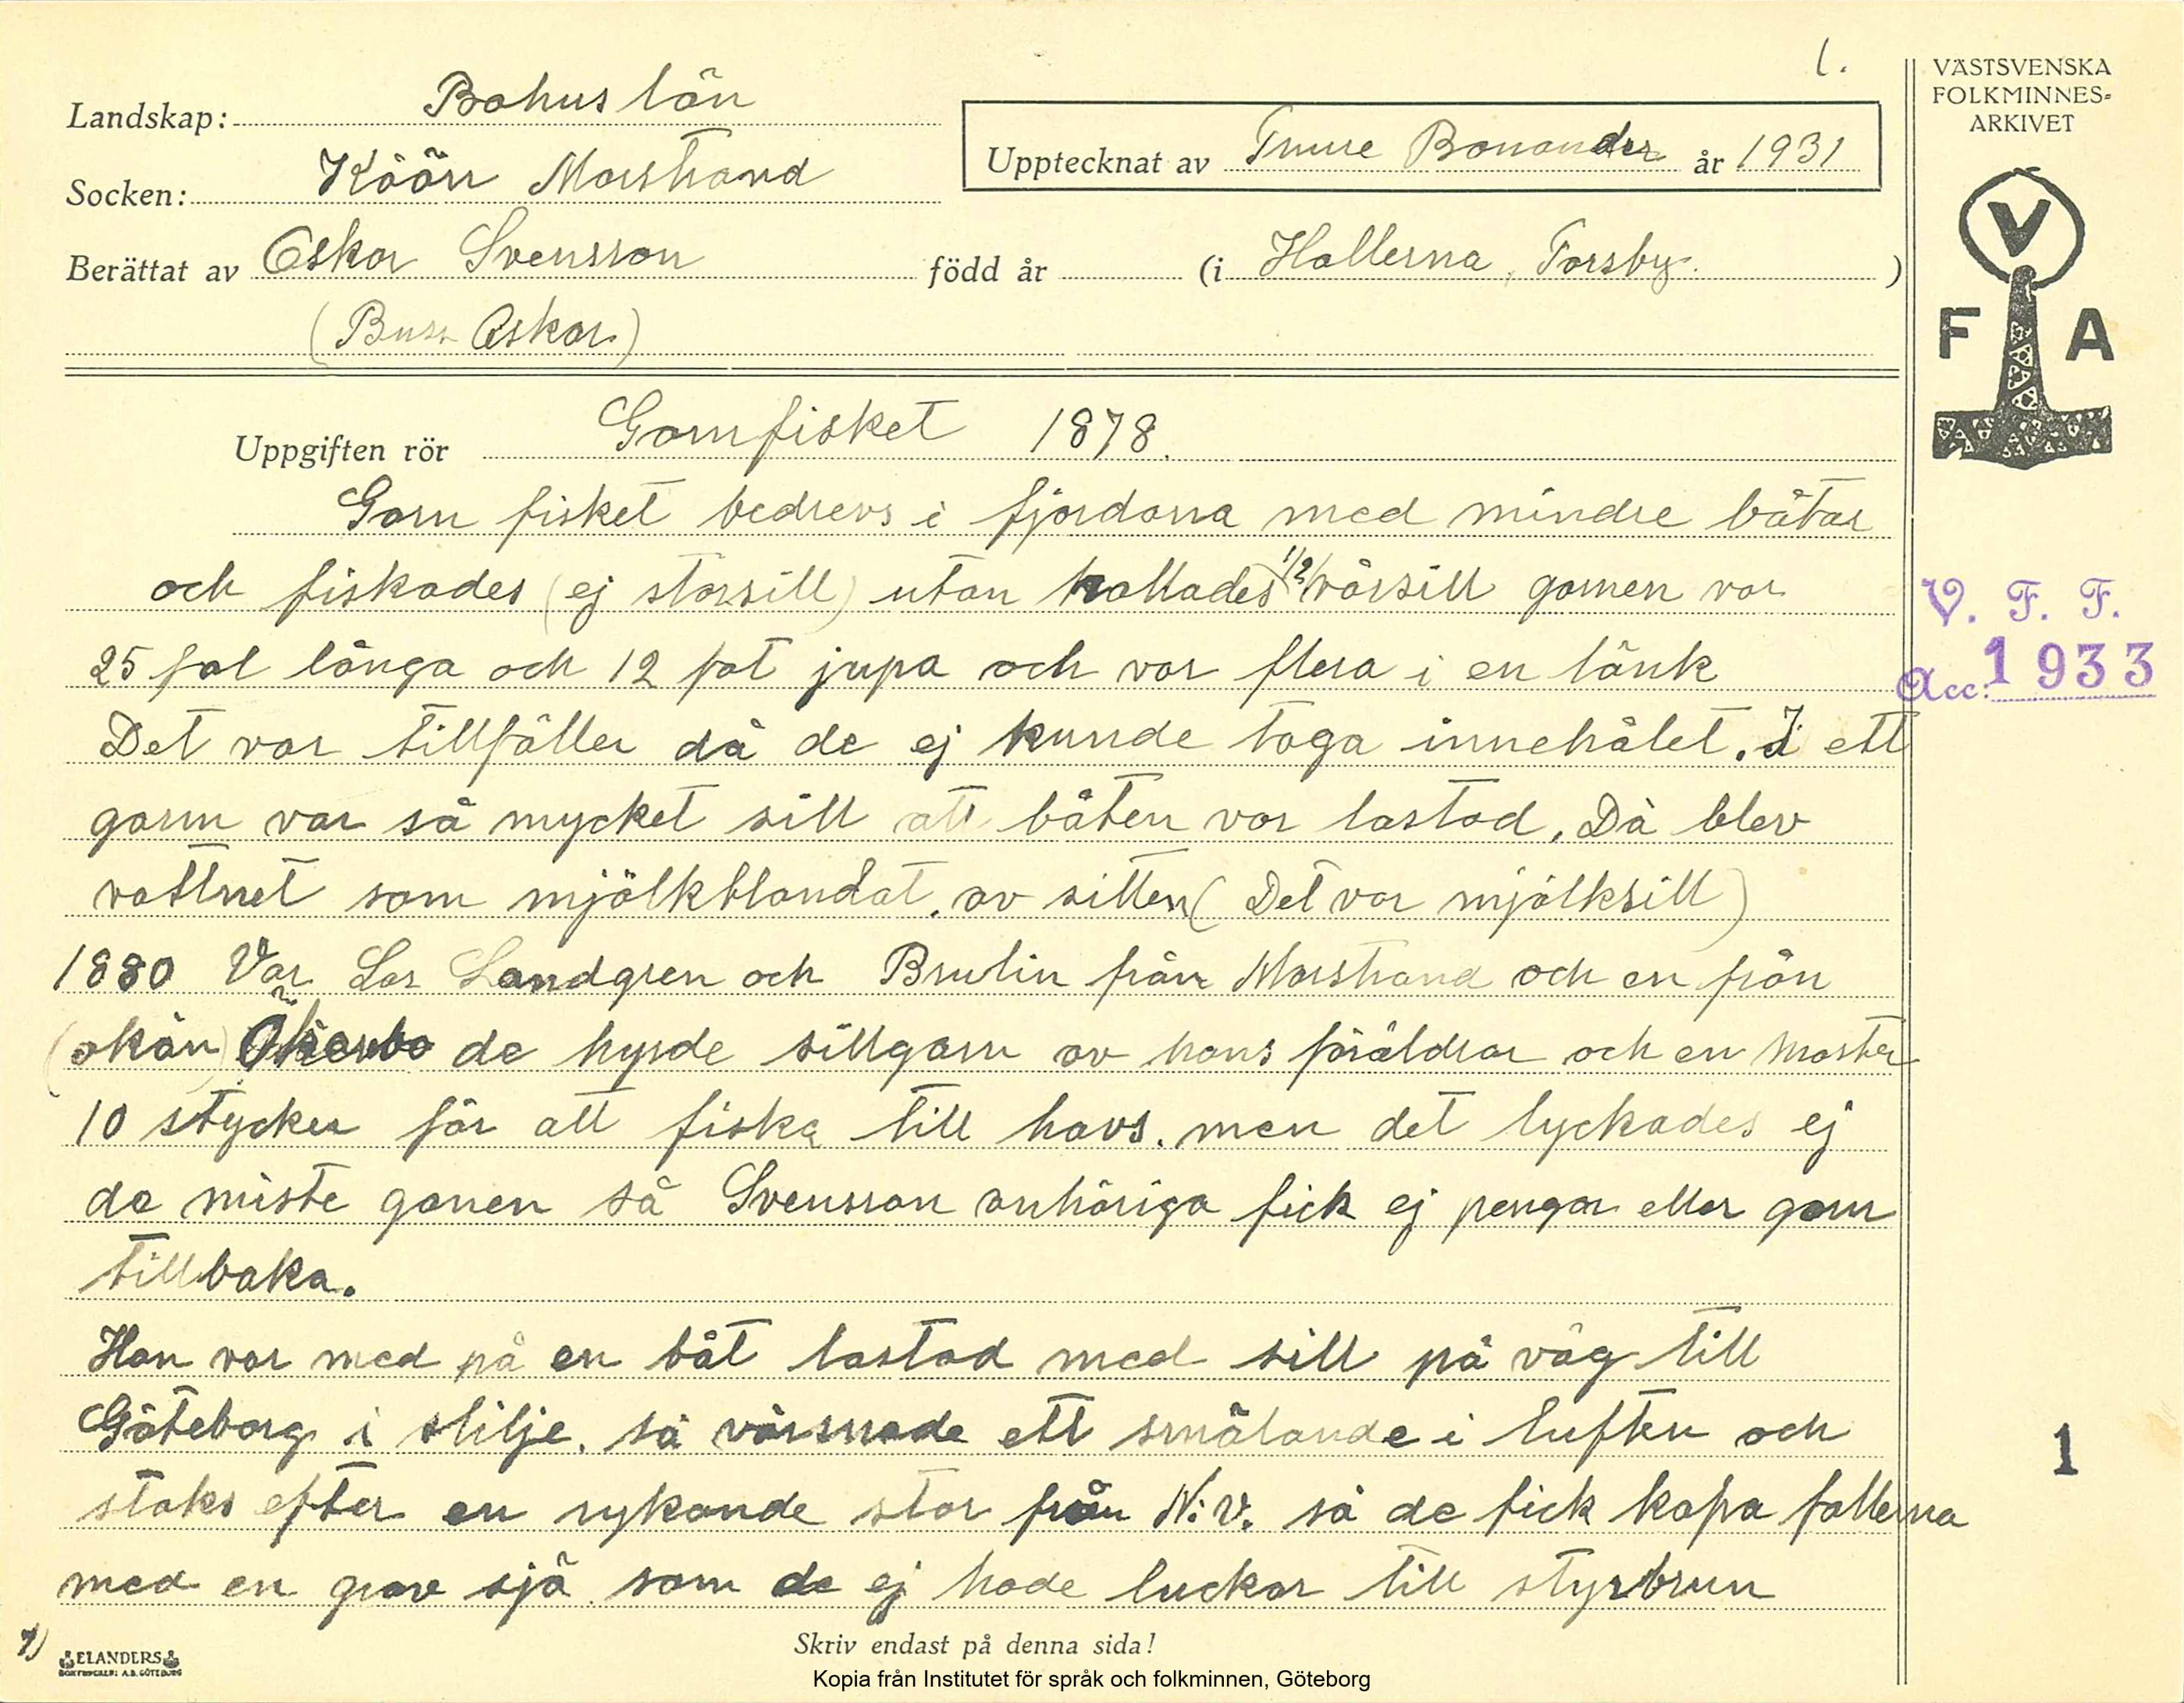 1.
Landskap: Bohuslän
Socken: Köön Marstrand
Upptecknat av Bonander år 1931
Berättat av Oskar Svensson född år (i Hallerna, Torsby.)
(Buss Oskar)
VÄSTSVENSKA
FOLKMINNES-
ARKIVET
V
F A
Uppgiften rör Garnfisket 1878.
Garn fisket bedrevs i fjordana med mindre båtar
och fiskades (ej storsill) utan kallades 1/2 vårsill garnen var
25 fat långa och 12 fat jupa och var flera i en länk
Det var tillfäller då de ej kunde taga innehålet. I ett
garn var så mycket sill att båten var lastad. Då blev
vattnet som mjölkblandat. av sillen (Det var mjölksill)
1880 Var Lars Landgren och Brulin från Marstrand och en från
(okän) de hyrde sillgarn av hans föräldrar och en moster
10 stycker för att fiska till havs. men det lyckades ej
de miste ganen så Svensson anhöriga fick ej pengar eller garn
tillbaka.
Han var med på en båt lastad med sill på väg till
Göteborg i stilje. så vårsnade ett smålande i luften och
staks efter en rykande stor från N:V. så de fick kapa fallerna
med en grov sjö som de ej hade luckor till styrbrun
V. F. F.
Acc: 1933
1
1)
ELANDERS
BOKTRYCKERI A.B. GÖTEBORG
Skriv endast på denna sida!
Kopia från Institutet för språk och folkminnen, Göteborg